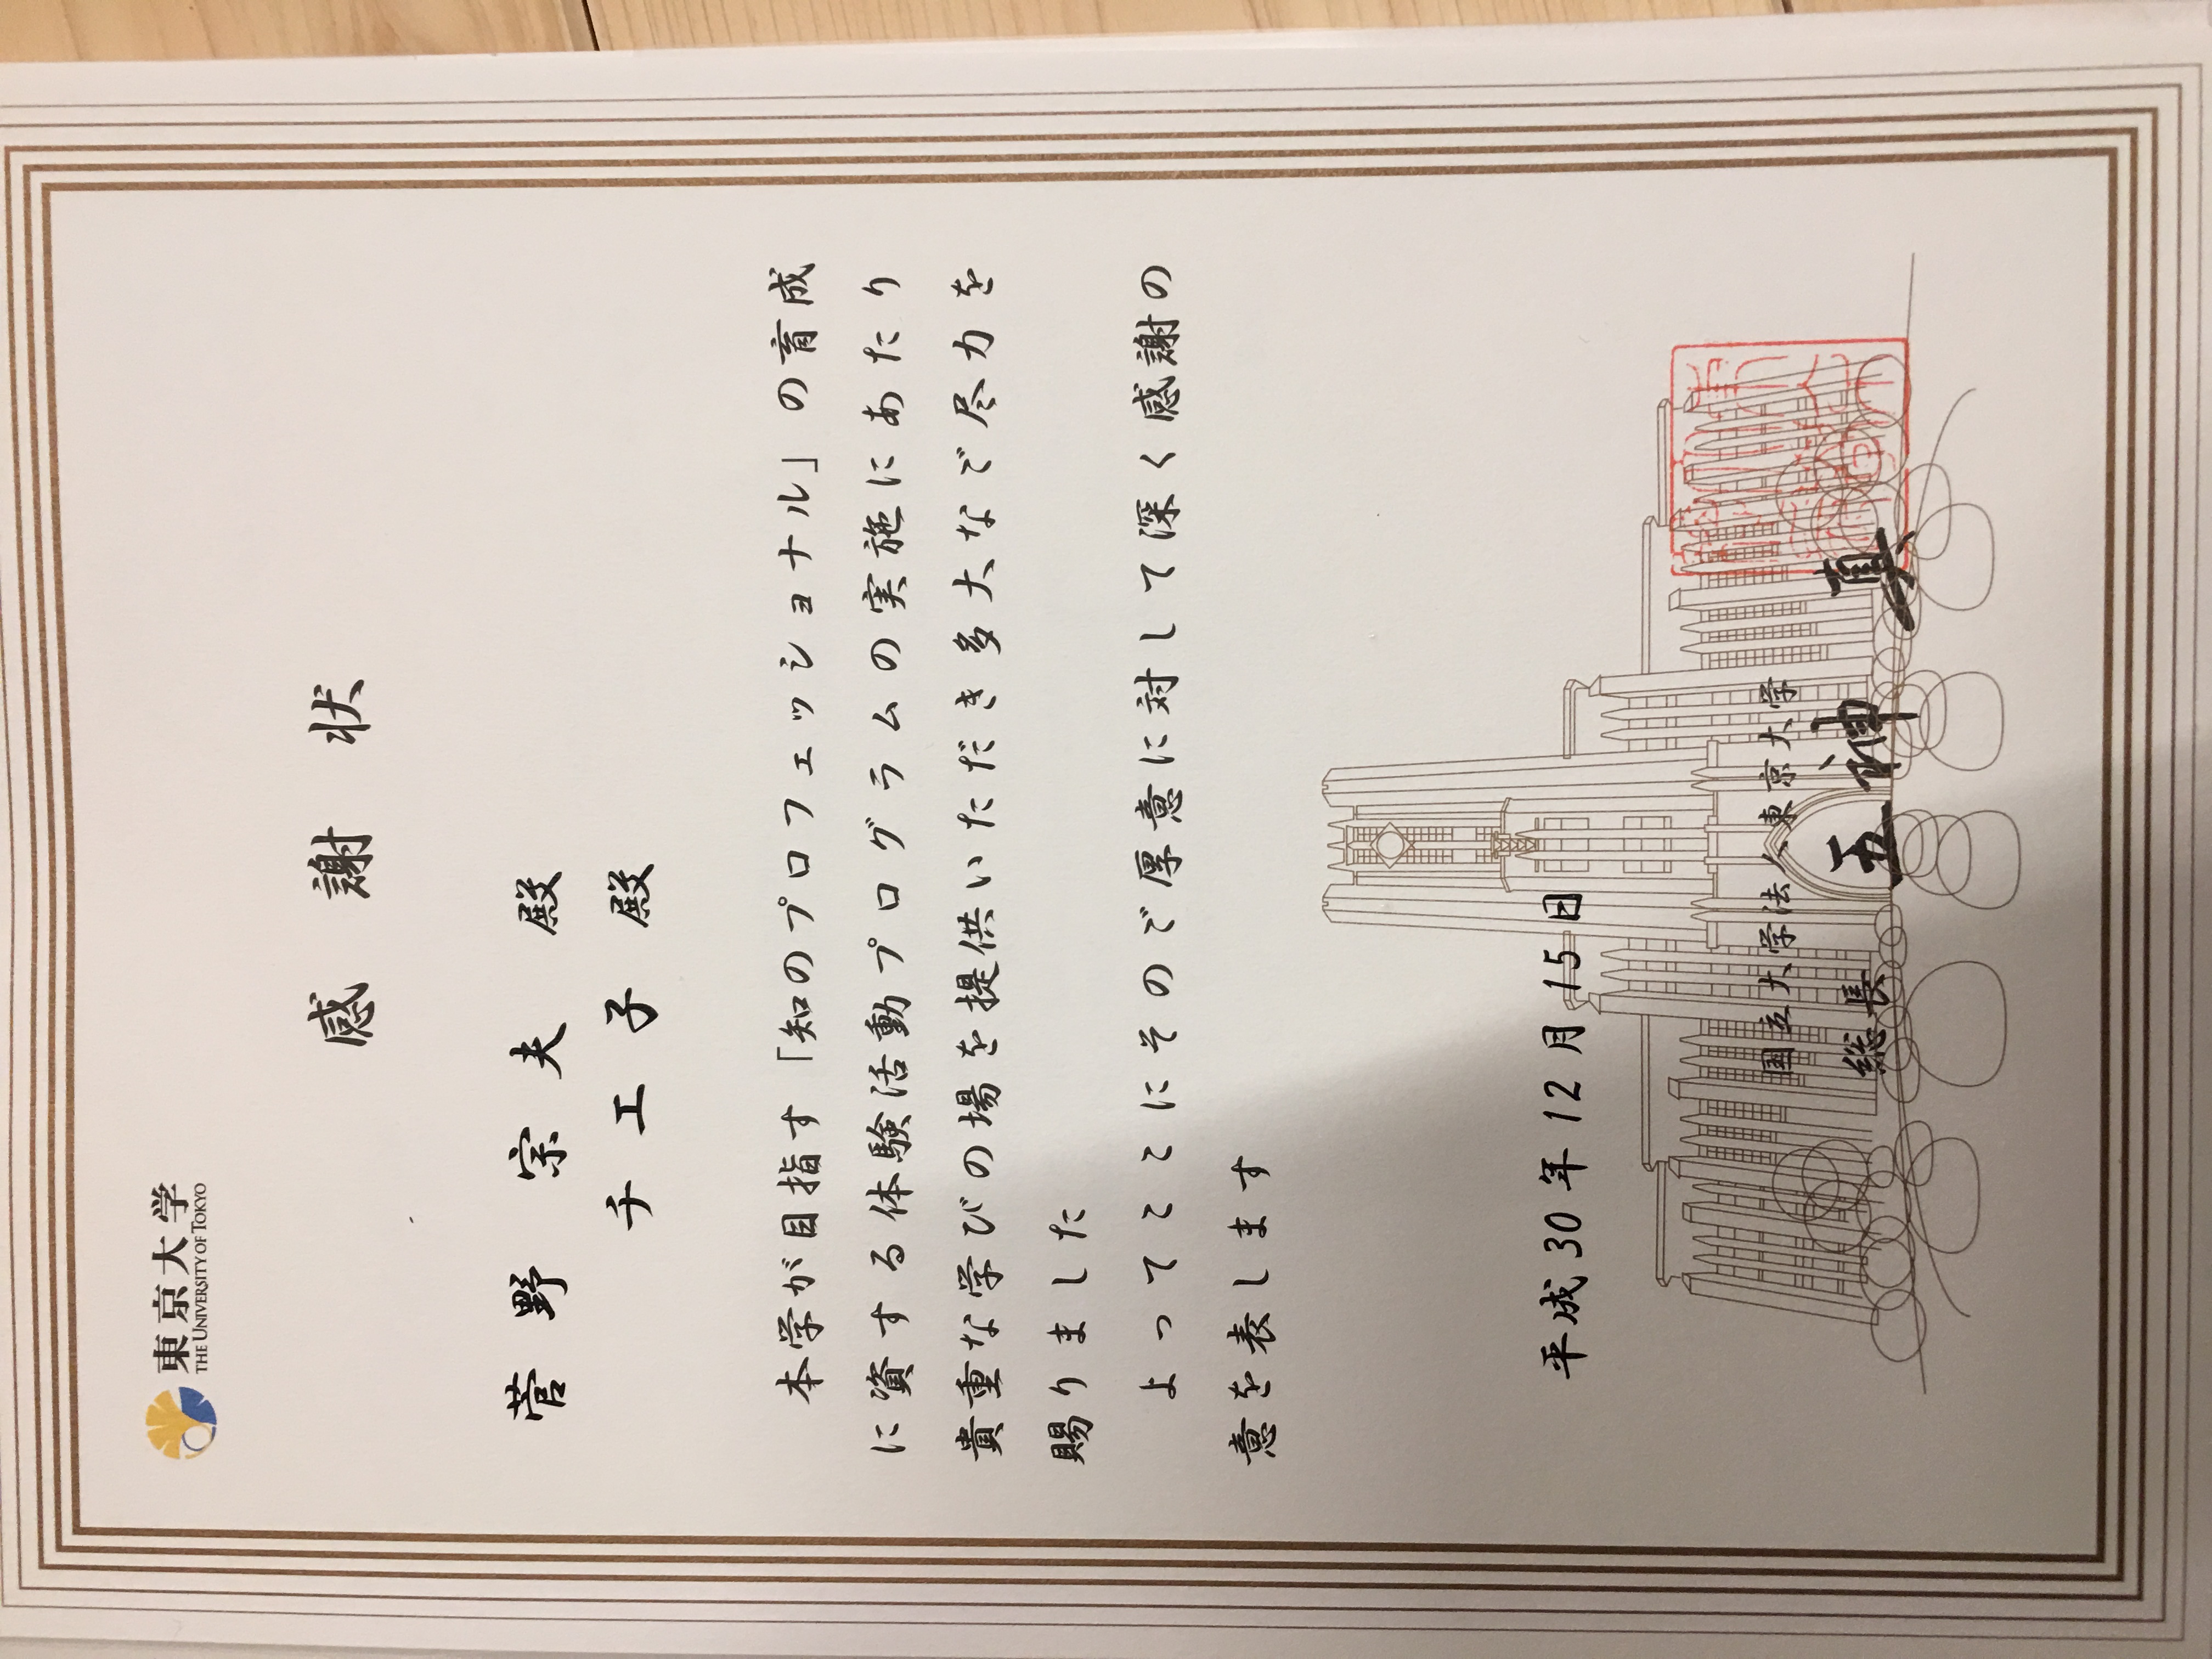 東京大学
THE UNIVERSITY OF TOKYO
感謝状
菅野 宗夫 殿
チエ子 殿
本学が目指す「知のプロフェッショナル」の育成
に資する体験活動プログラムの実施にあたり
貴重な学びの場を提供いただき多大なご尽力を
賜りました
よってここにそのご厚意に対して深く感謝の
意を表します
平成30年12月15日
国立大学法人東京大学
総長 五神 真